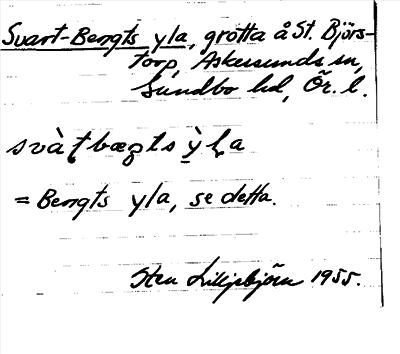 Svart-Bengts yla, grotta å St. Björs-
torp, Askersunds sn,
Sundbo hd, Ör. l.
svàt̨bæŋts ỳl̨a
= Bengts yla, se detta.
Sten Lilliebjörn 1955.